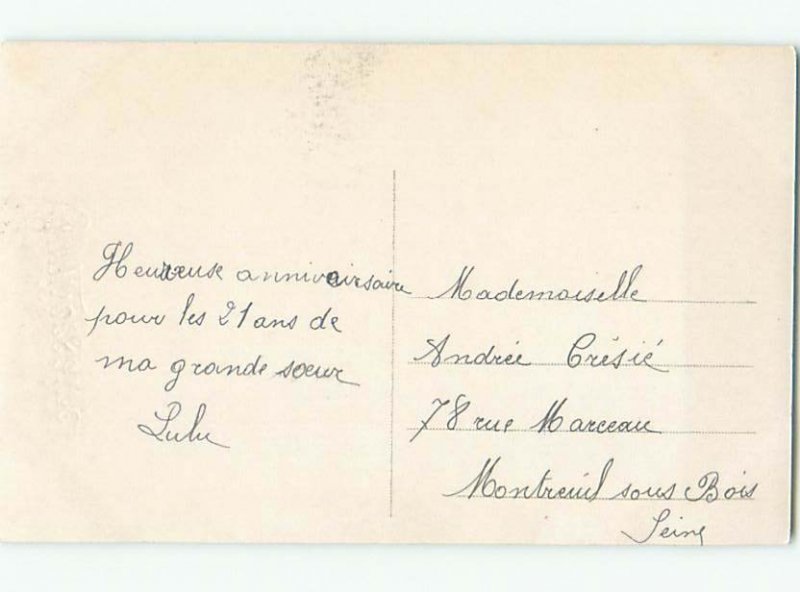 Heureuse anniversaire
pour les 21 ans de
ma grande sœur
Lulu
Mademoiselle
Andrée Crésié
78 rue Marceau
Montreuil sous Bois
Seine